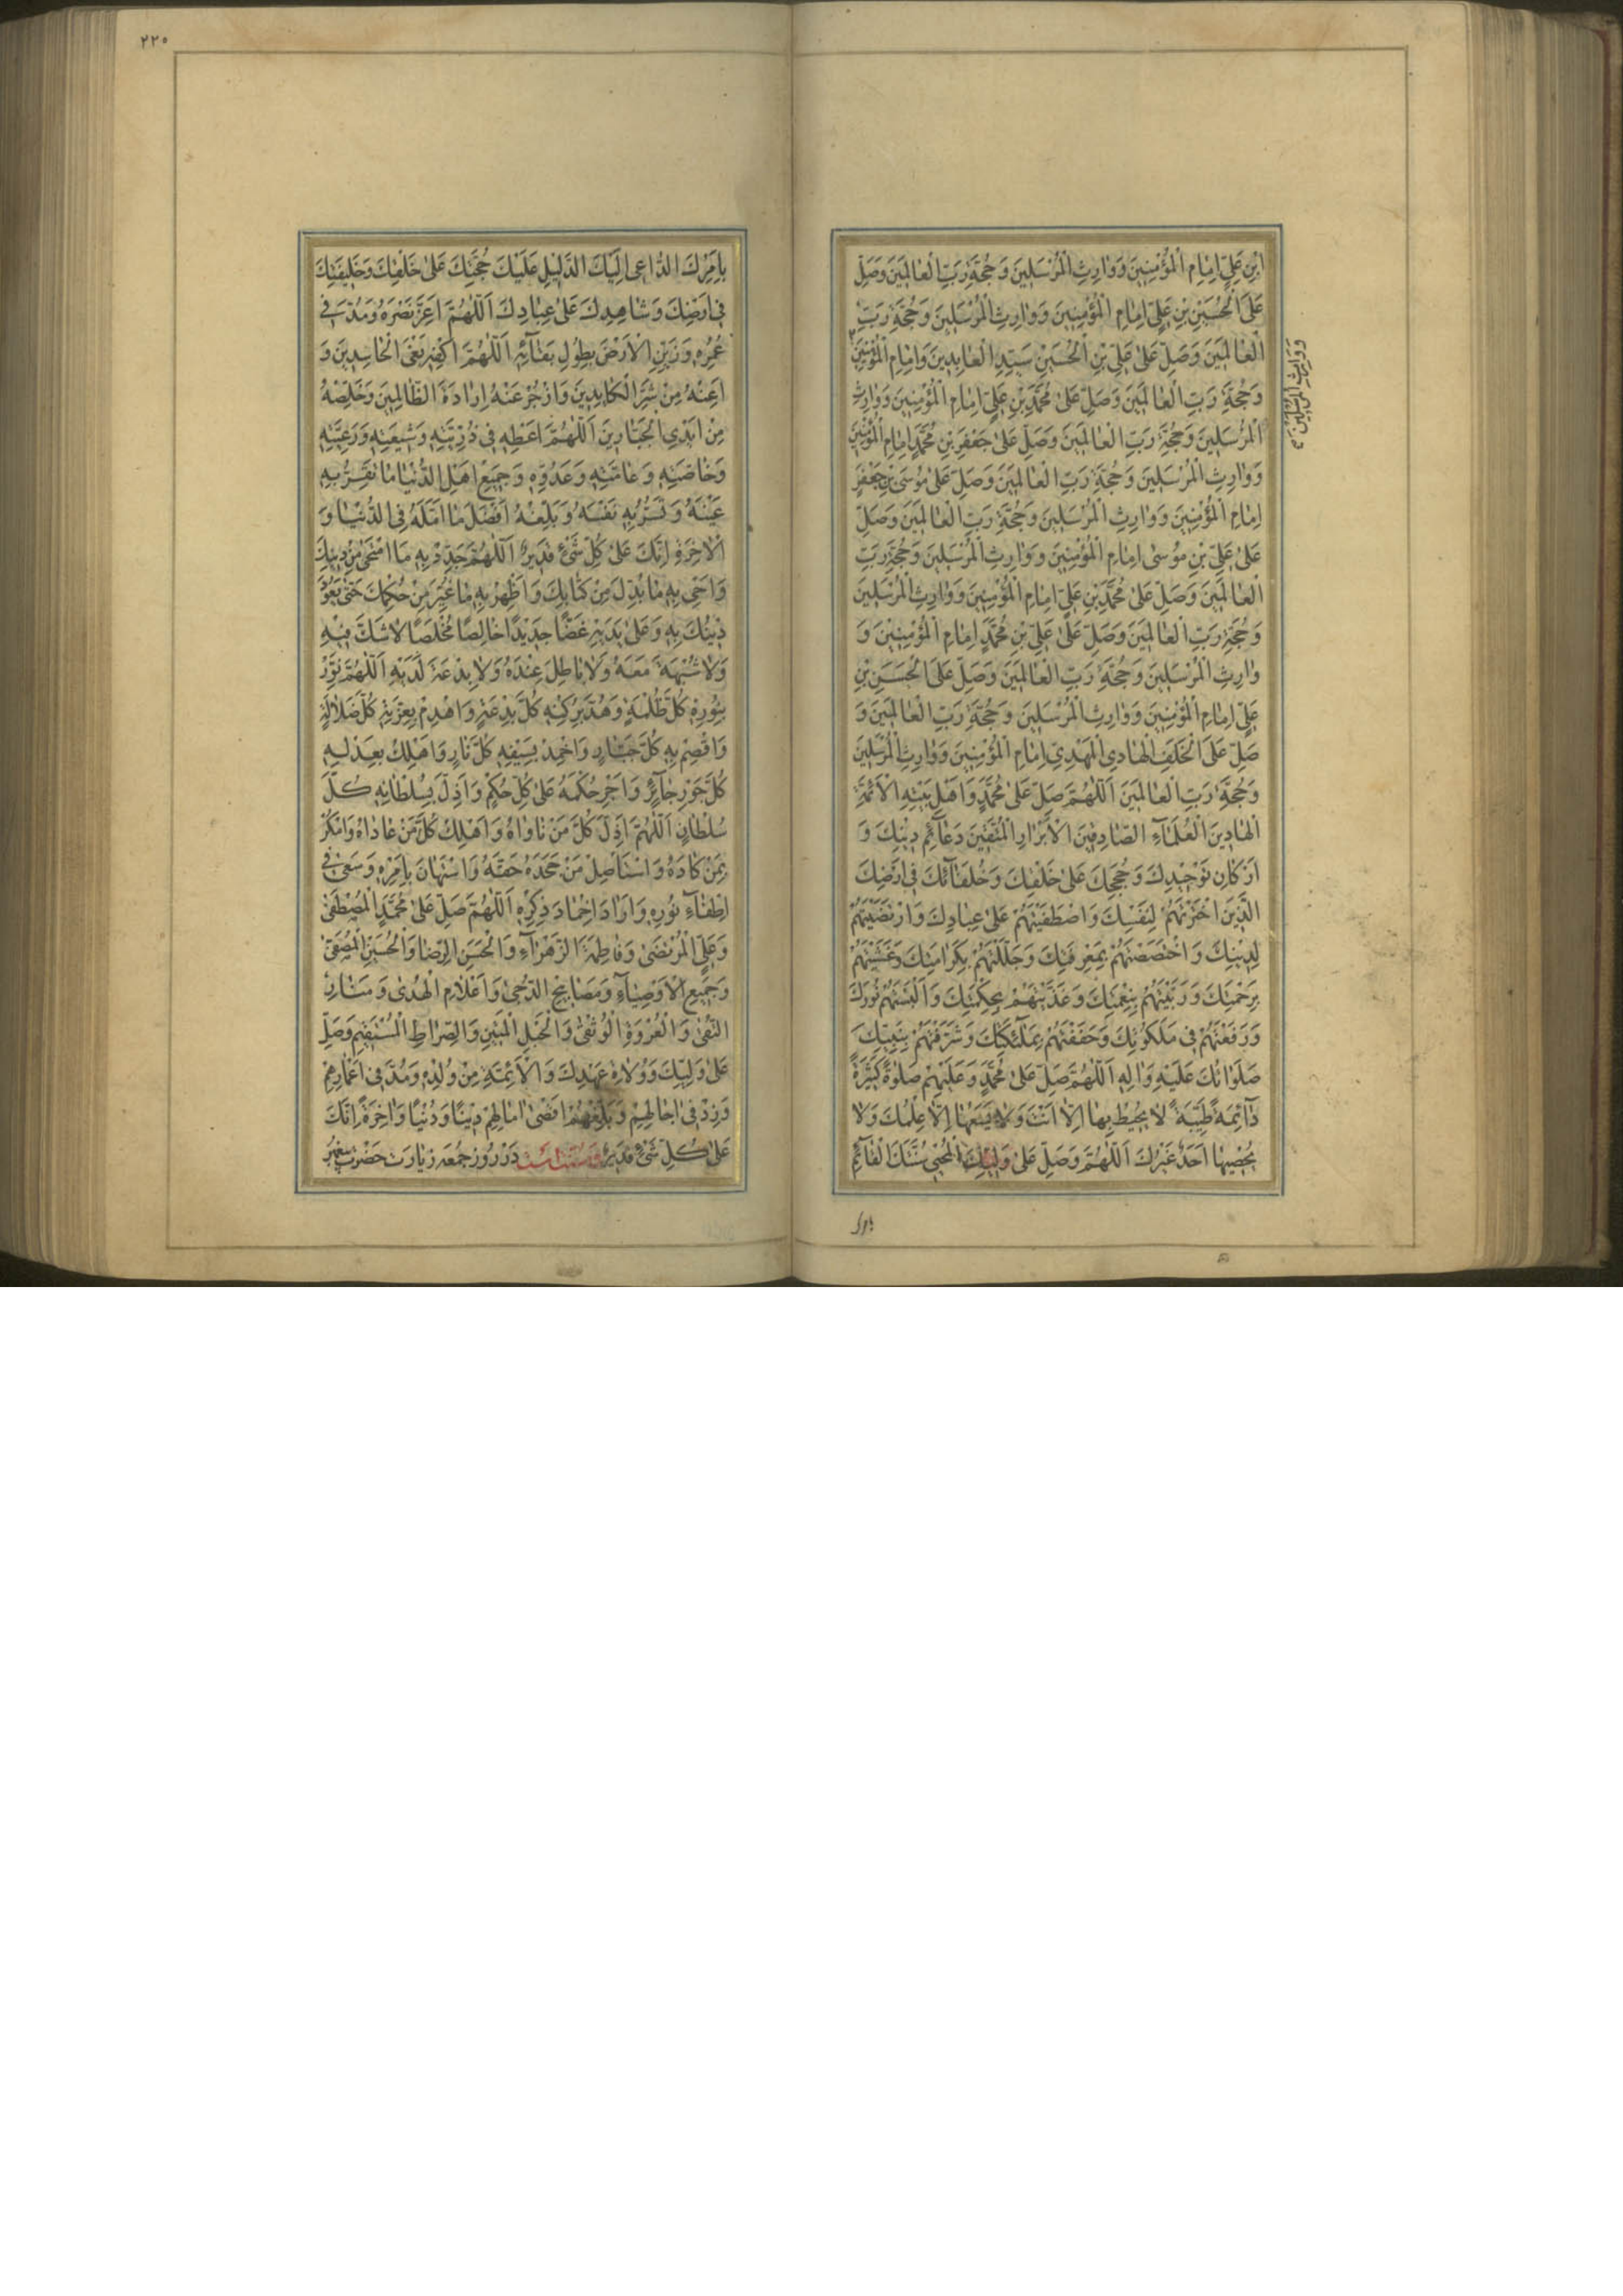 ابْنِ عَلِيٍّ اِمٰامِ الْمُؤْمِنِينَ وَوٰارِثِ الْمُرْسَلِينَ وَحُجَّةِ رَبِّ الْعٰالَمِينَ وَصَلِّ
عَلَى الْحُسَيْنِ بْنِ عَلِيٍّ اِمٰامِ الْمُؤْمِنِينَ وَوٰارِثِ الْمُرْسَلِينَ وَحُجَّةِ رَبِّ
الْعٰالَمِينَ وَصَلِّ عَلىٰ عَلِيِّ بْنِ الْحُسَيْنِ سَيِّدِ الْعٰابِدِينَ وَاِمٰامِ الْمُؤْمِنِينَ
وَوٰارِثِ الْمُرْسَلِينَ
وَحُجَّةِ رَبِّ الْعٰالَمِينَ وَصَلِّ عَلىٰ مُحَمَّدِ بْنِ عَلِيٍّ اِمٰامِ الْمُؤْمِنِينَ وَوٰارِثِ
الْمُرْسَلِينَ وَحُجَّةِ رَبِّ الْعٰالَمِينَ وَصَلِّ عَلىٰ جَعْفَرِ بْنِ مُحَمَّدٍ اِمٰامِ الْمُؤْمِنِينَ
وَوٰارِثِ الْمُرْسَلِينَ وَحُجَّةِ رَبِّ الْعٰالَمِينَ وَصَلِّ عَلىٰ مُوسَى بْنِ جَعْفَرٍ
اِمٰامِ الْمُؤْمِنِينَ وَوٰارِثِ الْمُرْسَلِينَ وَحُجَّةِ رَبِّ الْعٰالَمِينَ وَصَلِّ
عَلىٰ عَلِيِّ بْنِ مُوسىٰ اِمٰامِ الْمُؤْمِنِينَ وَوٰارِثِ الْمُرْسَلِينَ وَحُجَّةِ رَبِّ
الْعٰالَمِينَ وَصَلِّ عَلىٰ مُحَمَّدِ بْنِ عَلِيٍّ اِمٰامِ الْمُؤْمِنِينَ وَوٰارِثِ الْمُرْسَلِينَ
وَحُجَّةِ رَبِّ الْعٰالَمِينَ وَصَلِّ عَلىٰ عَلِيِّ بْنِ مُحَمَّدٍ اِمٰامِ الْمُؤْمِنِينَ وَ
وٰارِثِ الْمُرْسَلِينَ وَحُجَّةِ رَبِّ الْعٰالَمِينَ وَصَلِّ عَلَى الْحَسَنِ بْنِ
عَلِيٍّ اِمٰامِ الْمُؤْمِنِينَ وَوٰارِثِ الْمُرْسَلِينَ وَحُجَّةِ رَبِّ الْعٰالَمِينَ وَ
صَلِّ عَلَى الْخَلَفِ الْهٰادِي الْمَهْدِيِّ اِمٰامِ الْمُؤْمِنِينَ وَوٰارِثِ الْمُرْسَلِينَ
وَحُجَّةِ رَبِّ الْعٰالَمِينَ اَللّٰهُمَّ صَلِّ عَلىٰ مُحَمَّدٍ وَاَهْلِ بَيْتِهِ الْاَئِمَّةِ
الْهٰادِينَ الْعُلَمٰآءِ الصّٰادِقِينَ الْاَبْرٰارِ الْمُتَّقِينَ دَعٰآئِمِ دِينِكَ وَ
اَرْكٰانِ تَوْحِيدِكَ وَحُجَجِكَ عَلىٰ خَلْقِكَ وَخُلَفٰآئِكَ فِي اَرْضِكَ
الَّذِينَ اخْتَرْتَهُمْ لِنَفْسِكَ وَاصْطَفَيْتَهُمْ عَلىٰ عِبٰادِكَ وَارْتَضَيْتَهُمْ
لِدِينِكَ وَاخْتَصَصْتَهُمْ بِمَعْرِفَتِكَ وَجَلَّلْتَهُمْ بِكَرٰامَتِكَ وَغَشَّيْتَهُمْ
بِرَحْمَتِكَ وَرَبَّيْتَهُمْ بِنِعْمَتِكَ وَغَذَّيْتَهُمْ بِحِكْمَتِكَ وَاَلْبَسْتَهُمْ نُورَكَ
وَرَفَعْتَهُمْ فِي مَلَكُوتِكَ وَحَفَفْتَهُمْ بِمَلٰٓئِكَتِكَ وَشَرَّفْتَهُمْ بِنَبِيِّكَ
صَلَوٰاتُكَ عَلَيْهِ وَاٰلِهِ اَللّٰهُمَّ صَلِّ عَلىٰ مُحَمَّدٍ وَعَلَيْهِمْ صَلٰوةً كَثِيرَةً
دٰآئِمَةً طَيِّبَةً لٰا يُحِيطُ بِهٰا اِلّٰا اَنْتَ وَلٰا يَسَعُهٰا اِلّٰا عِلْمُكَ وَلٰا
يُحْصِيهٰا اَحَدٌ غَيْرُكَ اَللّٰهُمَّ وَصَلِّ عَلىٰ وَلِيِّكَ الْمُحْيِي سُنَّتَكَ الْقٰآئِمِ
بامرك
٢٢٥
بِاَمْرِكَ الدّٰاعِي اِلَيْكَ الدَّلِيلِ عَلَيْكَ حُجَّتِكَ عَلىٰ خَلْقِكَ وَخَلِيفَتِكَ
فِي اَرْضِكَ وَشٰاهِدِكَ عَلىٰ عِبٰادِكَ اَللّٰهُمَّ اَعِزَّ نَصْرَهُ وَمُدَّ فِي
عُمُرِهِ وَزَيِّنِ الْاَرْضَ بِطُولِ بَقٰآئِهِ اَللّٰهُمَّ اكْفِهِ بَغْيَ الْحٰاسِدِينَ وَ
اَعِذْهُ مِنْ شَرِّ الْكٰايِدِينَ وَازْجُرْ عَنْهُ اِرٰادَةَ الظّٰالِمِينَ وَخَلِّصْهُ
مِنْ اَيْدِي الْجَبّٰارِينَ اَللّٰهُمَّ اَعْطِهِ فِي ذُرِّيَّتِهِ وَشِيعَتِهِ وَرَعِيَّتِهِ
وَخٰاصَّتِهِ وَعٰامَّتِهِ وَعَدُوِّهِ وَجَمِيعِ اَهْلِ الدُّنْيٰا مٰا تُقِرُّ بِهِ
عَيْنَهُ وَتَسُرُّ بِهِ نَفْسَهُ وَبَلِّغْهُ اَفْضَلَ مٰا اَمَّلَهُ فِي الدُّنْيٰا وَ
الْاٰخِرَةِ اِنَّكَ عَلىٰ كُلِّ شَيْءٍ قَدِيرٌ اَللّٰهُمَّ جَدِّدْ بِهِ مَا امْتَحىٰ مِنْ دِينِكَ
وَاَحْيِ بِهِ مٰا بُدِّلَ مِنْ كِتٰابِكَ وَاَظْهِرْ بِهِ مٰا غُيِّرَ مِنْ حُكْمِكَ حَتّىٰ يَعُودَ
دِينُكَ بِهِ وَعَلىٰ يَدَيْهِ غَضًّا جَدِيدًا خٰالِصًا مُخْلَصًا لٰا شَكَّ فِيهِ
وَلٰا شُبْهَةَ مَعَهُ وَلٰا بٰاطِلَ عِنْدَهُ وَلٰا بِدْعَةَ لَدَيْهِ اَللّٰهُمَّ نَوِّرْ
بِنُورِهِ كُلَّ ظُلْمَةٍ وَهُدَّ بِرُكْنِهِ كُلَّ بِدْعَةٍ وَاهْدِمْ بِعِزَّتِهِ كُلَّ ضَلٰالَةٍ
وَاقْصِمْ بِهِ كُلَّ جَبّٰارٍ وَاَخْمِدْ بِسَيْفِهِ كُلَّ نٰارٍ وَاَهْلِكْ بِعَدْلِهِ
كُلَّ جَوْرِ جٰآئِرٍ وَاَجْرِ حُكْمَهُ عَلىٰ كُلِّ حُكْمٍ وَاَذِلَّ بِسُلْطٰانِهِ كُلَّ
سُلْطٰانٍ اَللّٰهُمَّ اَذِلَّ كُلَّ مَنْ نٰاوٰاهُ وَاَهْلِكْ كُلَّ مَنْ عٰادٰاهُ وَامْكُرْ
بِمَنْ كٰادَهُ وَاسْتَأْصِلْ مَنْ جَحَدَهُ حَقَّهُ وَاسْتَهٰانَ بِاَمْرِهِ وَسَعىٰ فِي
اِطْفٰآءِ نُورِهِ وَاَرٰادَ اِخْمٰادَ ذِكْرِهِ اَللّٰهُمَّ صَلِّ عَلىٰ مُحَمَّدٍ الْمُصْطَفىٰ
وَعَلِيٍّ الْمُرْتَضىٰ وَفٰاطِمَةَ الزَّهْرٰآءِ وَالْحَسَنِ الرِّضٰا وَالْحُسَيْنِ الْمُصَفّىٰ
وَجَمِيعِ الْاَوْصِيٰآءِ وَمَصٰابِيحِ الدُّجىٰ وَاَعْلٰامِ الْهُدىٰ وَمَنٰارِ
التُّقىٰ وَالْعُرْوَةِ الْوُثْقىٰ وَالْحَبْلِ الْمَتِينِ وَالصِّرٰاطِ الْمُسْتَقِيمِ وَصَلِّ
عَلىٰ وَلِيِّكَ وَوُلٰاةِ عَهْدِكَ وَالْاَئِمَّةِ مِنْ وُلْدِهِ وَمُدَّ فِي اَعْمٰارِهِمْ
وَزِدْ فِي اٰجٰالِهِمْ وَبَلِّغْهُمْ اَقْصىٰ اٰمٰالِهِمْ دِينًا وَدُنْيًا وَاٰخِرَةً اِنَّكَ
عَلىٰ كُلِّ شَيْءٍ قَدِيرٌ وَسُنَّتْ اسْتْ دَرْ رُوزِ جُمْعَه زِيٰارَتِ حَضْرَتِ پيغمبر